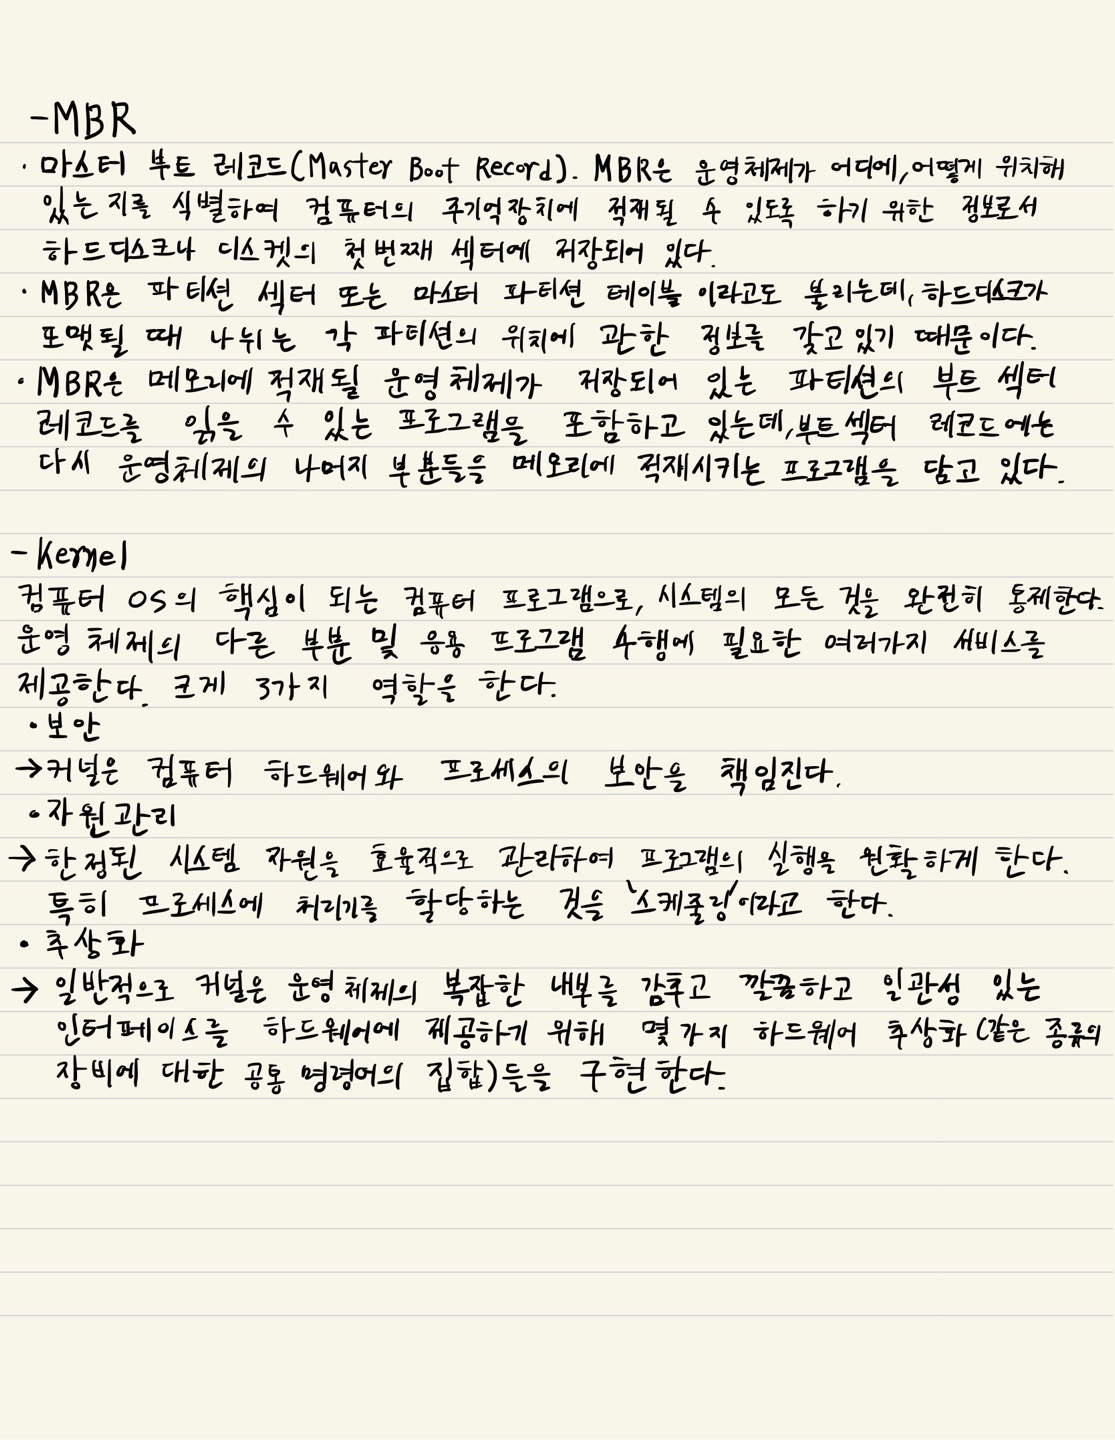 -MBR
· 마스터 부트 레코드(Master Boot Record). MBR은 운영체제가 어디에, 어떻게 위치해
있는 지를 식별하여 컴퓨터의 주기억장치에 적재될 수 있도록 하기 위한 정보로서
하드디스크나 디스켓의 첫 번째 섹터에 저장되어 있다.
· MBR은 파티션 섹터 또는 마스터 파티션 테이블 이라고도 불리는데, 하드디스크가
포맷될 때 나뉘는 각 파티션의 위치에 관한 정보를 갖고 있기 때문이다.
· MBR은 메모리에 적재될 운영체제가 저장되어 있는 파티션의 부트 섹터
레코드를 읽을 수 있는 프로그램을 포함하고 있는데, 부트 섹터 레코드에는
다시 운영체제의 나머지 부분들을 메모리에 적재시키는 프로그램을 담고 있다.
- Kernel
컴퓨터 OS의 핵심이 되는 컴퓨터 프로그램으로, 시스템의 모든 것을 완전히 통제한다.
운영 체제의 다른 부분 및 응용 프로그램 수행에 필요한 여러가지 서비스를
제공한다. 크게 3가지 역할을 한다.
· 보안
→ 커널은 컴퓨터 하드웨어와 프로세스의 보안을 책임진다.
· 자원관리
→ 한정된 시스템 자원을 효율적으로 관리하여 프로그램의 실행을 원활하게 한다.
특히 프로세스에 처리기를 할당하는 것을 '스케줄링'이라고 한다.
· 추상화
→ 일반적으로 커널은 운영체제의 복잡한 내부를 감추고 깔끔하고 일관성 있는
인터페이스를 하드웨어에 제공하기 위해 몇 가지 하드웨어 추상화 (같은 종류의
장비에 대한 공통 명령어의 집합)들을 구현한다.